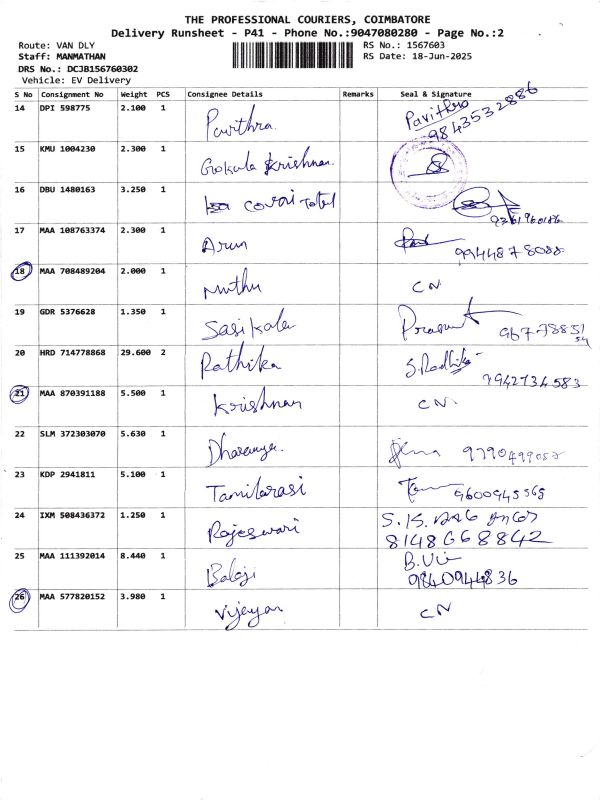 THE PROFESSIONAL COURIERS, COIMBATORE
Delivery Runsheet - P41 - Phone No.:9047080280 - Page No.:2
Route: VAN DLY RS No.: 1567603
Staff: MANMATHAN RS Date: 18-Jun-2025
DRS No.: DCJB156760302
Vehicle: EV Delivery
S No Consignment No Weight PCS Consignee Details Remarks Seal & Signature
14 DPI 598775 2.100 1 Pavithra Pavithra
9843532886
15 KMU 1004230 2.300 1 Gokula Krishnan
16 DBU 1480163 3.250 1 covai
17 MAA 108763374 2.300 1 Arun 9944878088
18 MAA 708489204 2.000 1 Muthu CN
19 GDR 5376628 1.350 1 Sasikala
20 HRD 714778868 29.600 2 Rathika S. Radhika
9942734583
21 MAA 870391188 5.500 1 Krishnan CN.
22 SLM 372303070 5.630 1 Dharanya. 9790499052
23 KDP 2941811 5.100 1 Tamilarasi 9600945565
24 IXM 508436372 1.250 1 Rajeswari
8148668842
25 MAA 111392014 8.440 1 Balaji
9840944836
26 MAA 577820152 3.980 1 Vijayan CN